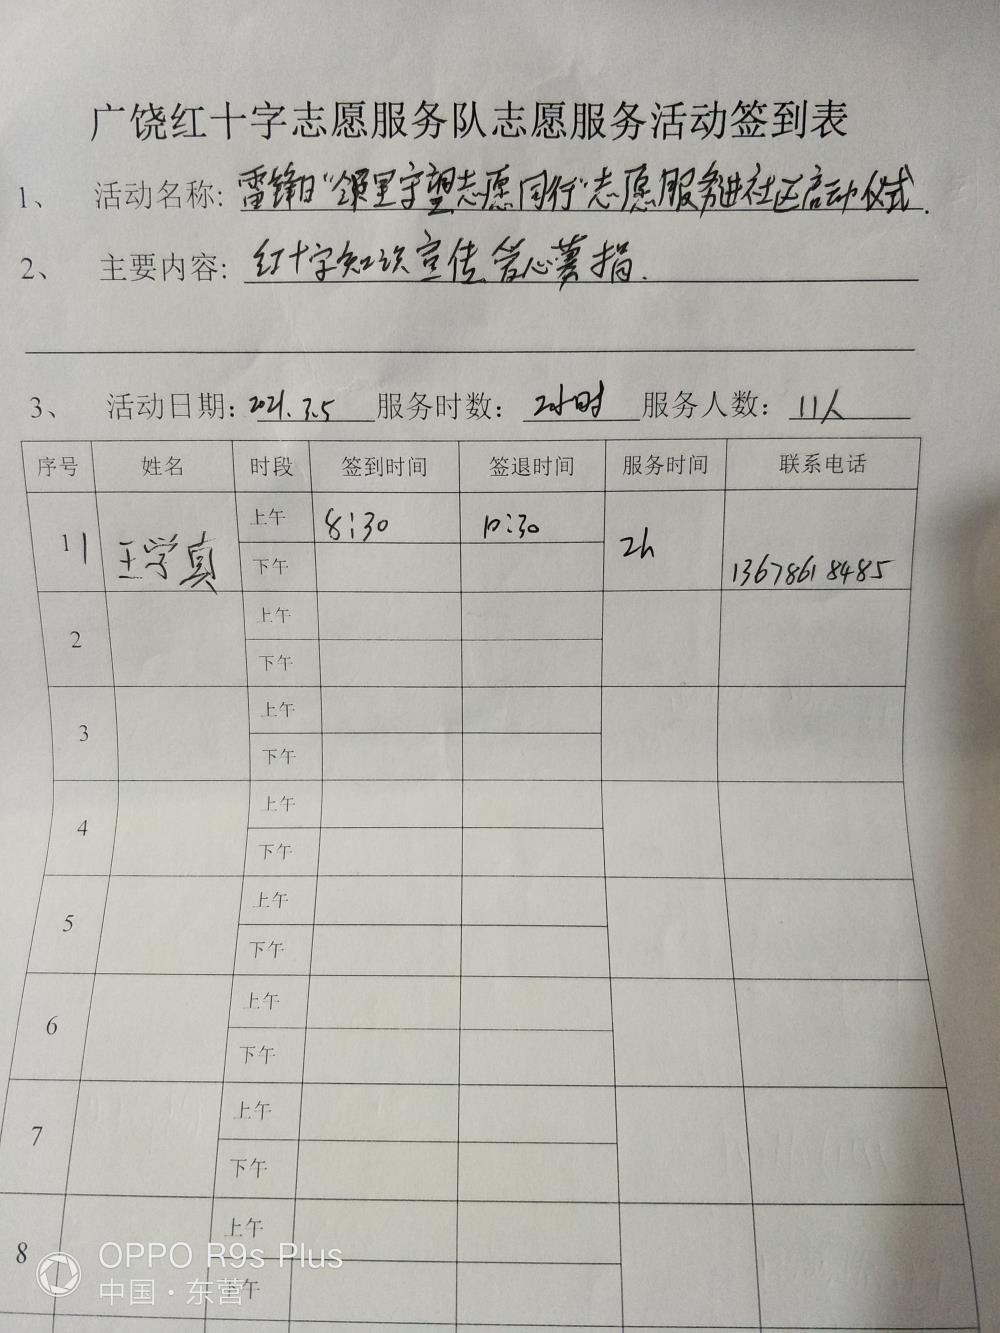 广饶红十字志愿服务队志愿服务活动签到表
1、 活动名称: 雷锋日“邻里守望志愿同行”志愿服务进社区启动仪式.
2、 主要内容: 红十字知识宣传、爱心募捐.
3、 活动日期: 2021.3.5 服务时数: 2小时 服务人数: 11人
序号 姓名 时段 签到时间 签退时间 服务时间 联系电话
11 王学真 上午 8:30 10:30 2h 13678618485
下午
2 上午
下午
3 上午
下午
4 上午
下午
5 上午
下午
6 上午
下午
7 上午
下午
8 上午
下午
OPPO R9s Plus
中国·东营